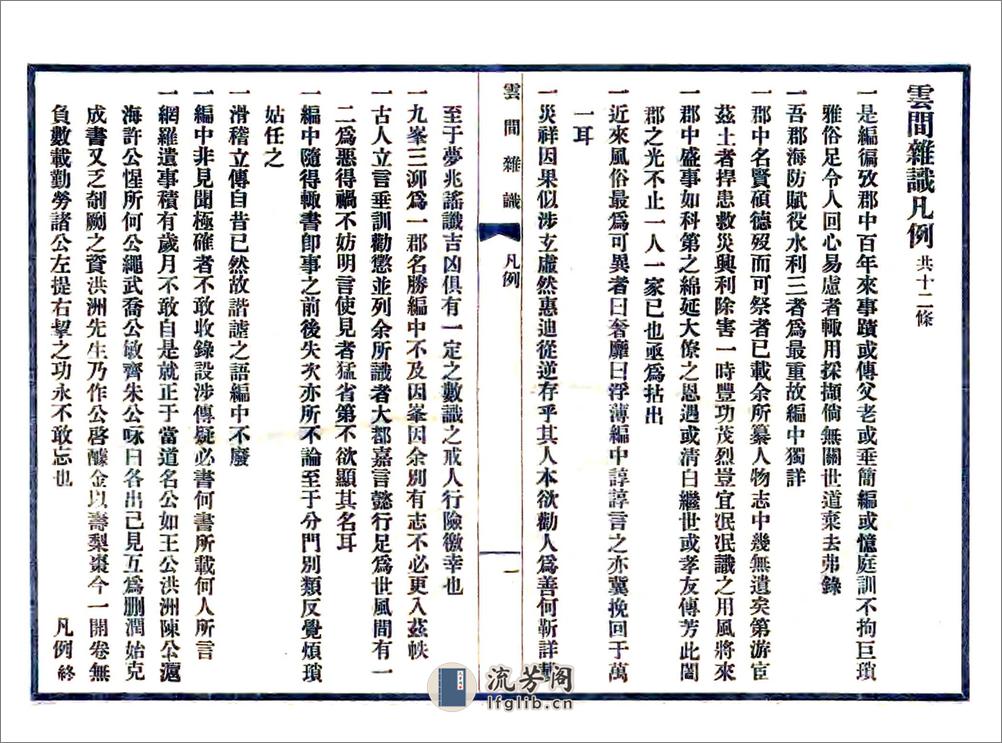 雲間雜識凡例 共十二條
一是編徧攷郡中百年來事蹟或傳父老或垂簡編或憶庭訓不拘巨瑣
雅俗足令人回心易慮者輙用採擷倘無關世道棄去弗錄
一吾郡海防賦役水利三者爲最重故編中獨詳
一郡中名賢碩德歿而可祭者已載余所纂人物志中幾無遺矣第游宦
茲土者捍患救災興利除害一時豐功茂烈豈宜冺冺識之用風將來
一郡中盛事如科第之綿延大僚之恩遇或清白繼世或孝友傳芳此闔
郡之光不止一人一家已也亟爲拈出
一近來風俗最爲可異者曰奢靡曰浮薄編中諄諄言之亦冀挽回于萬
一耳
一災祥因果似涉玄虛然惠迪從逆存乎其人本欲勸人爲善何靳詳載
雲間雜識
凡例
一
至于夢兆謠讖吉凶俱有一定之數識之戒人行險徼幸也
一九峯三泖爲一郡名勝編中不及因峯因余別有志不必更入茲帙
一古人立言垂訓勸懲並列余所識者大都嘉言懿行足爲世風間有一
二爲惡得禍不妨明言使見者猛省第不欲顯其名耳
一編中隨得輙書卽事之前後失次亦所不論至于分門別類反覺煩瑣
姑任之
一滑稽立傳自昔已然故諧謔之語編中不廢
一編中非見聞極確者不敢收錄設涉傳疑必書何書所載何人所言
一網羅遺事積有歲月不敢自是就正于當道名公如王公洪洲陳公滬
海許公惺所何公繩武喬公敏齊朱公咏曰各出己見互爲删潤始克
成書又乏剞劂之資洪洲先生乃作公啓醵金以壽梨棗今一開卷無
負數載勤勞諸公左提右挈之功永不敢忘也
凡例終
流芳阁
lfglib.cn